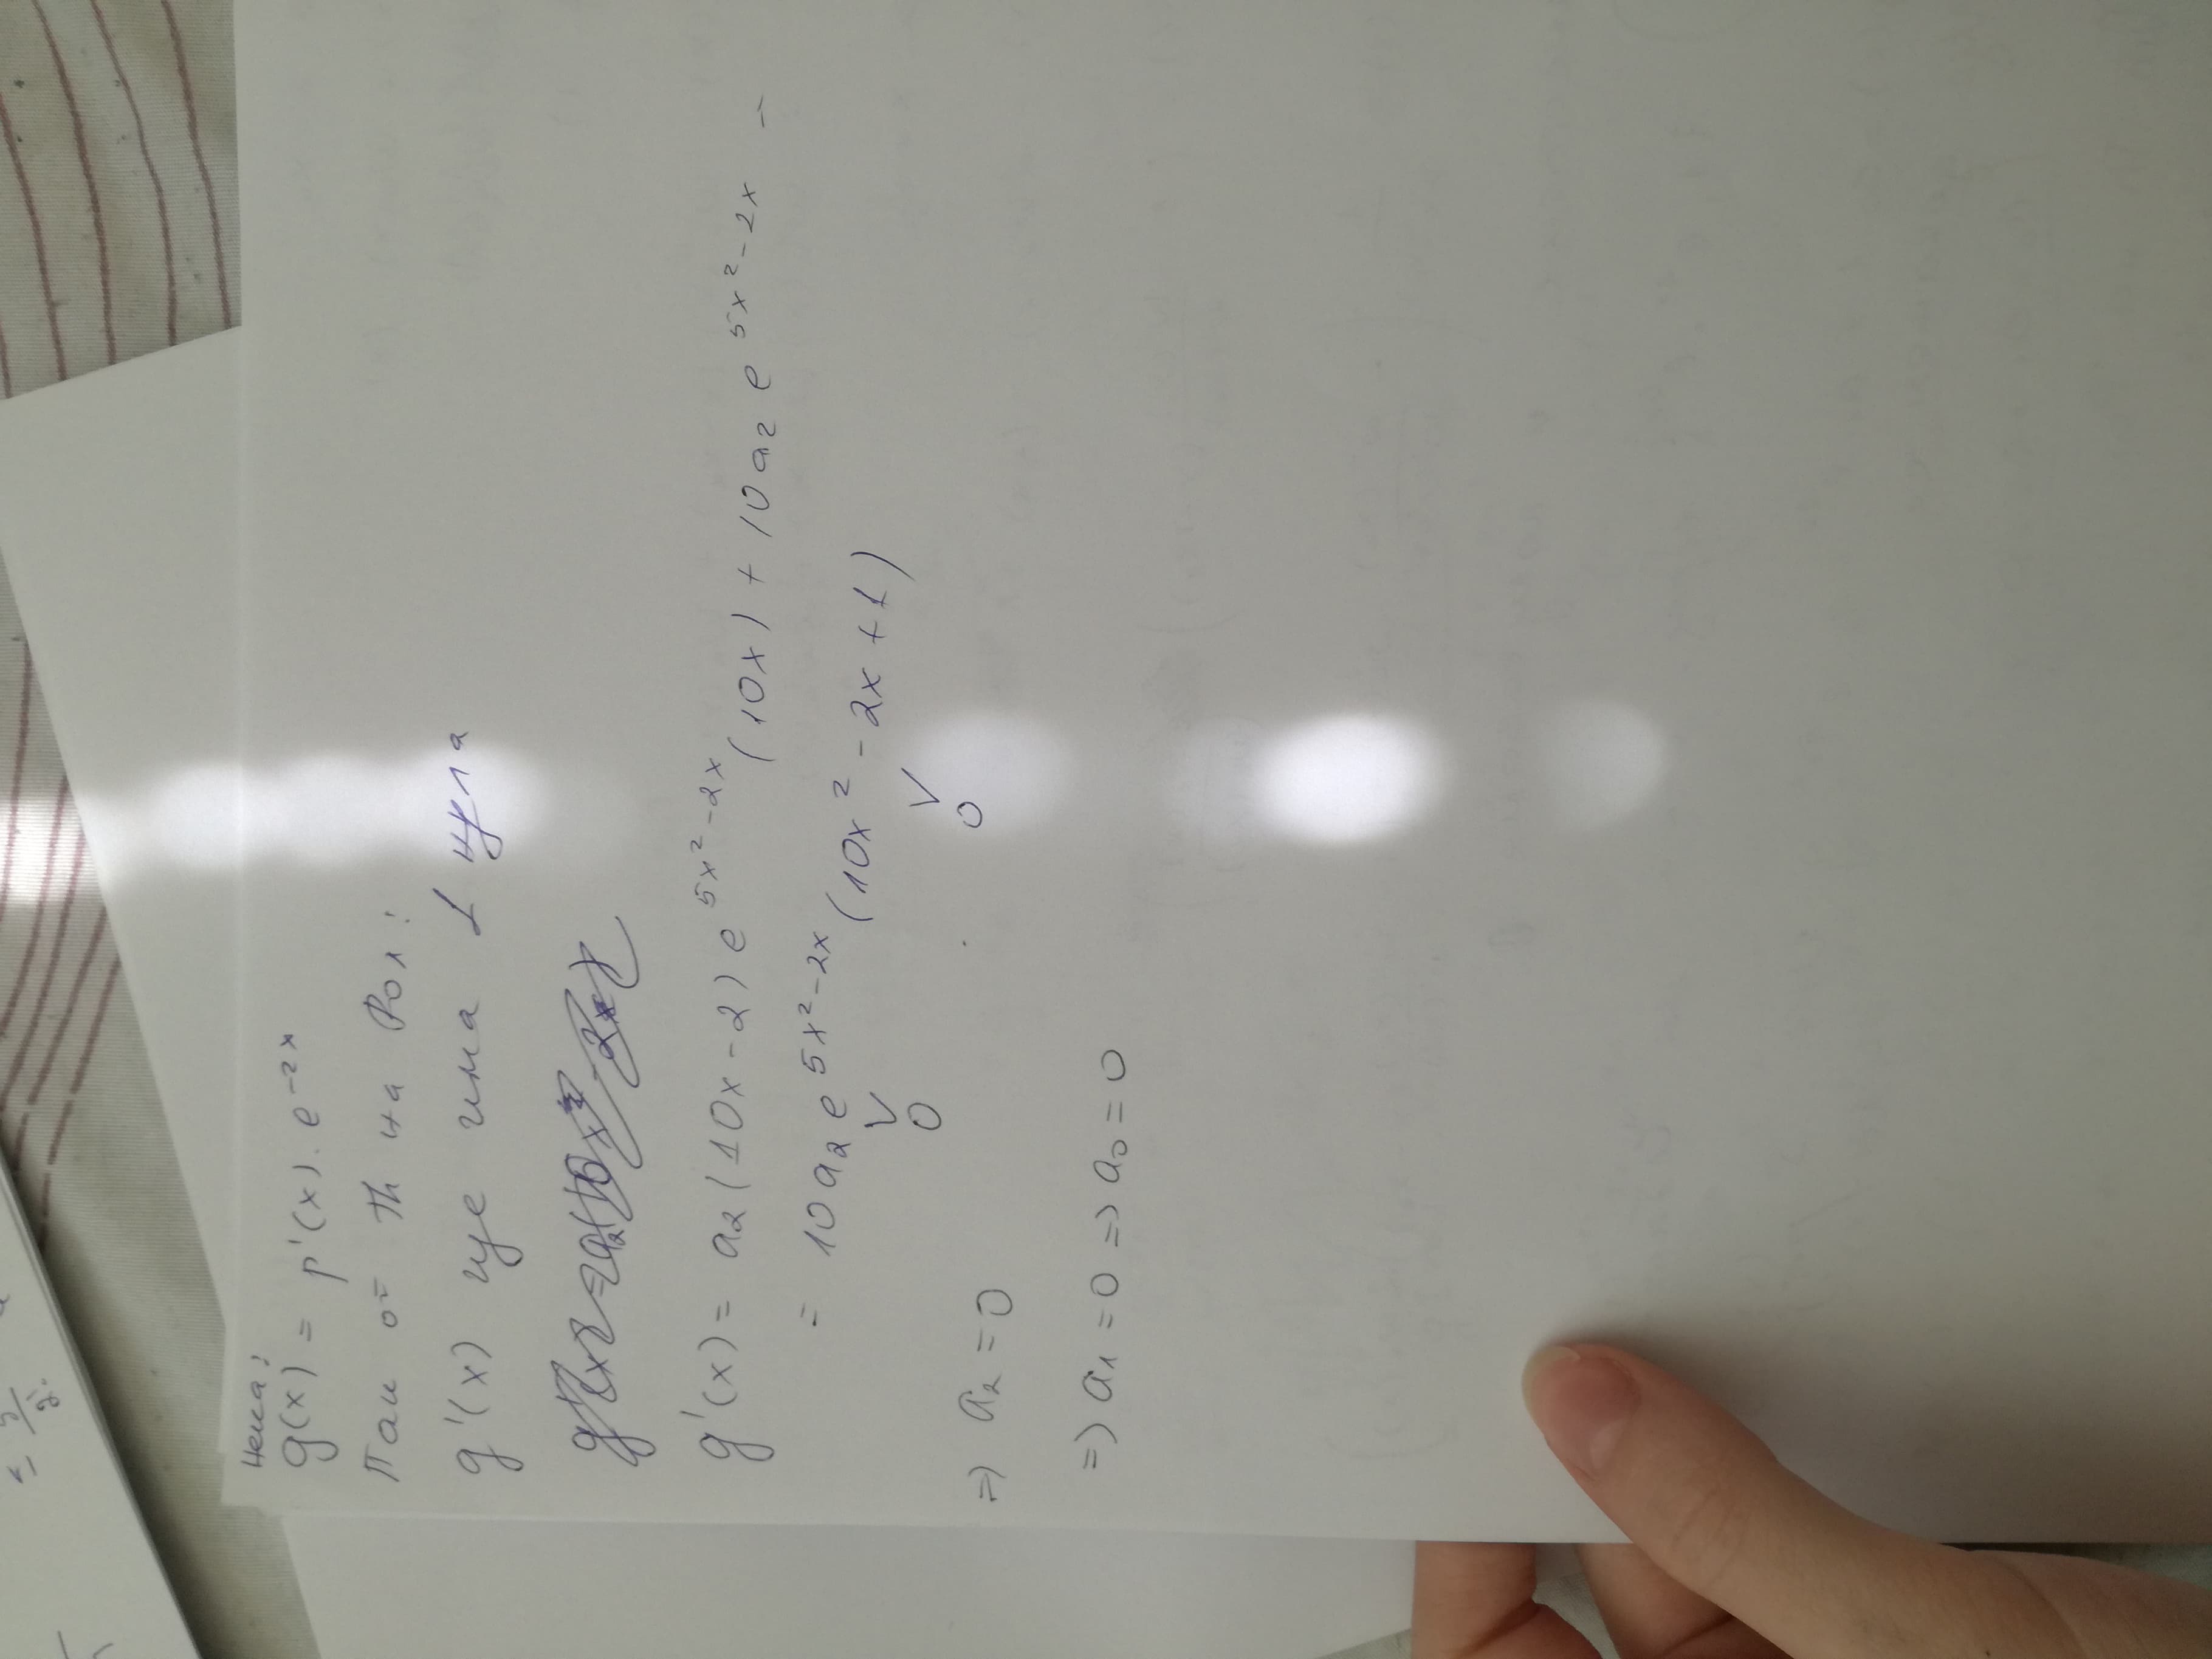 ≤ 5/2!
Нека:
g(x) = p'(x). e^{-2x}
Пак от Th на Рол:
g'(x) ще има 1 нула
g'(x) = a₂(10x-2) e^{5x²-2x} (10x) + 10a₂ e^{5x²-2x} =
= 10a₂ e^{5x²-2x} (10x² - 2x + 1)
∨ ∨
0 0
=> a₂ = 0
=> a₁ = 0 => a₀ = 0